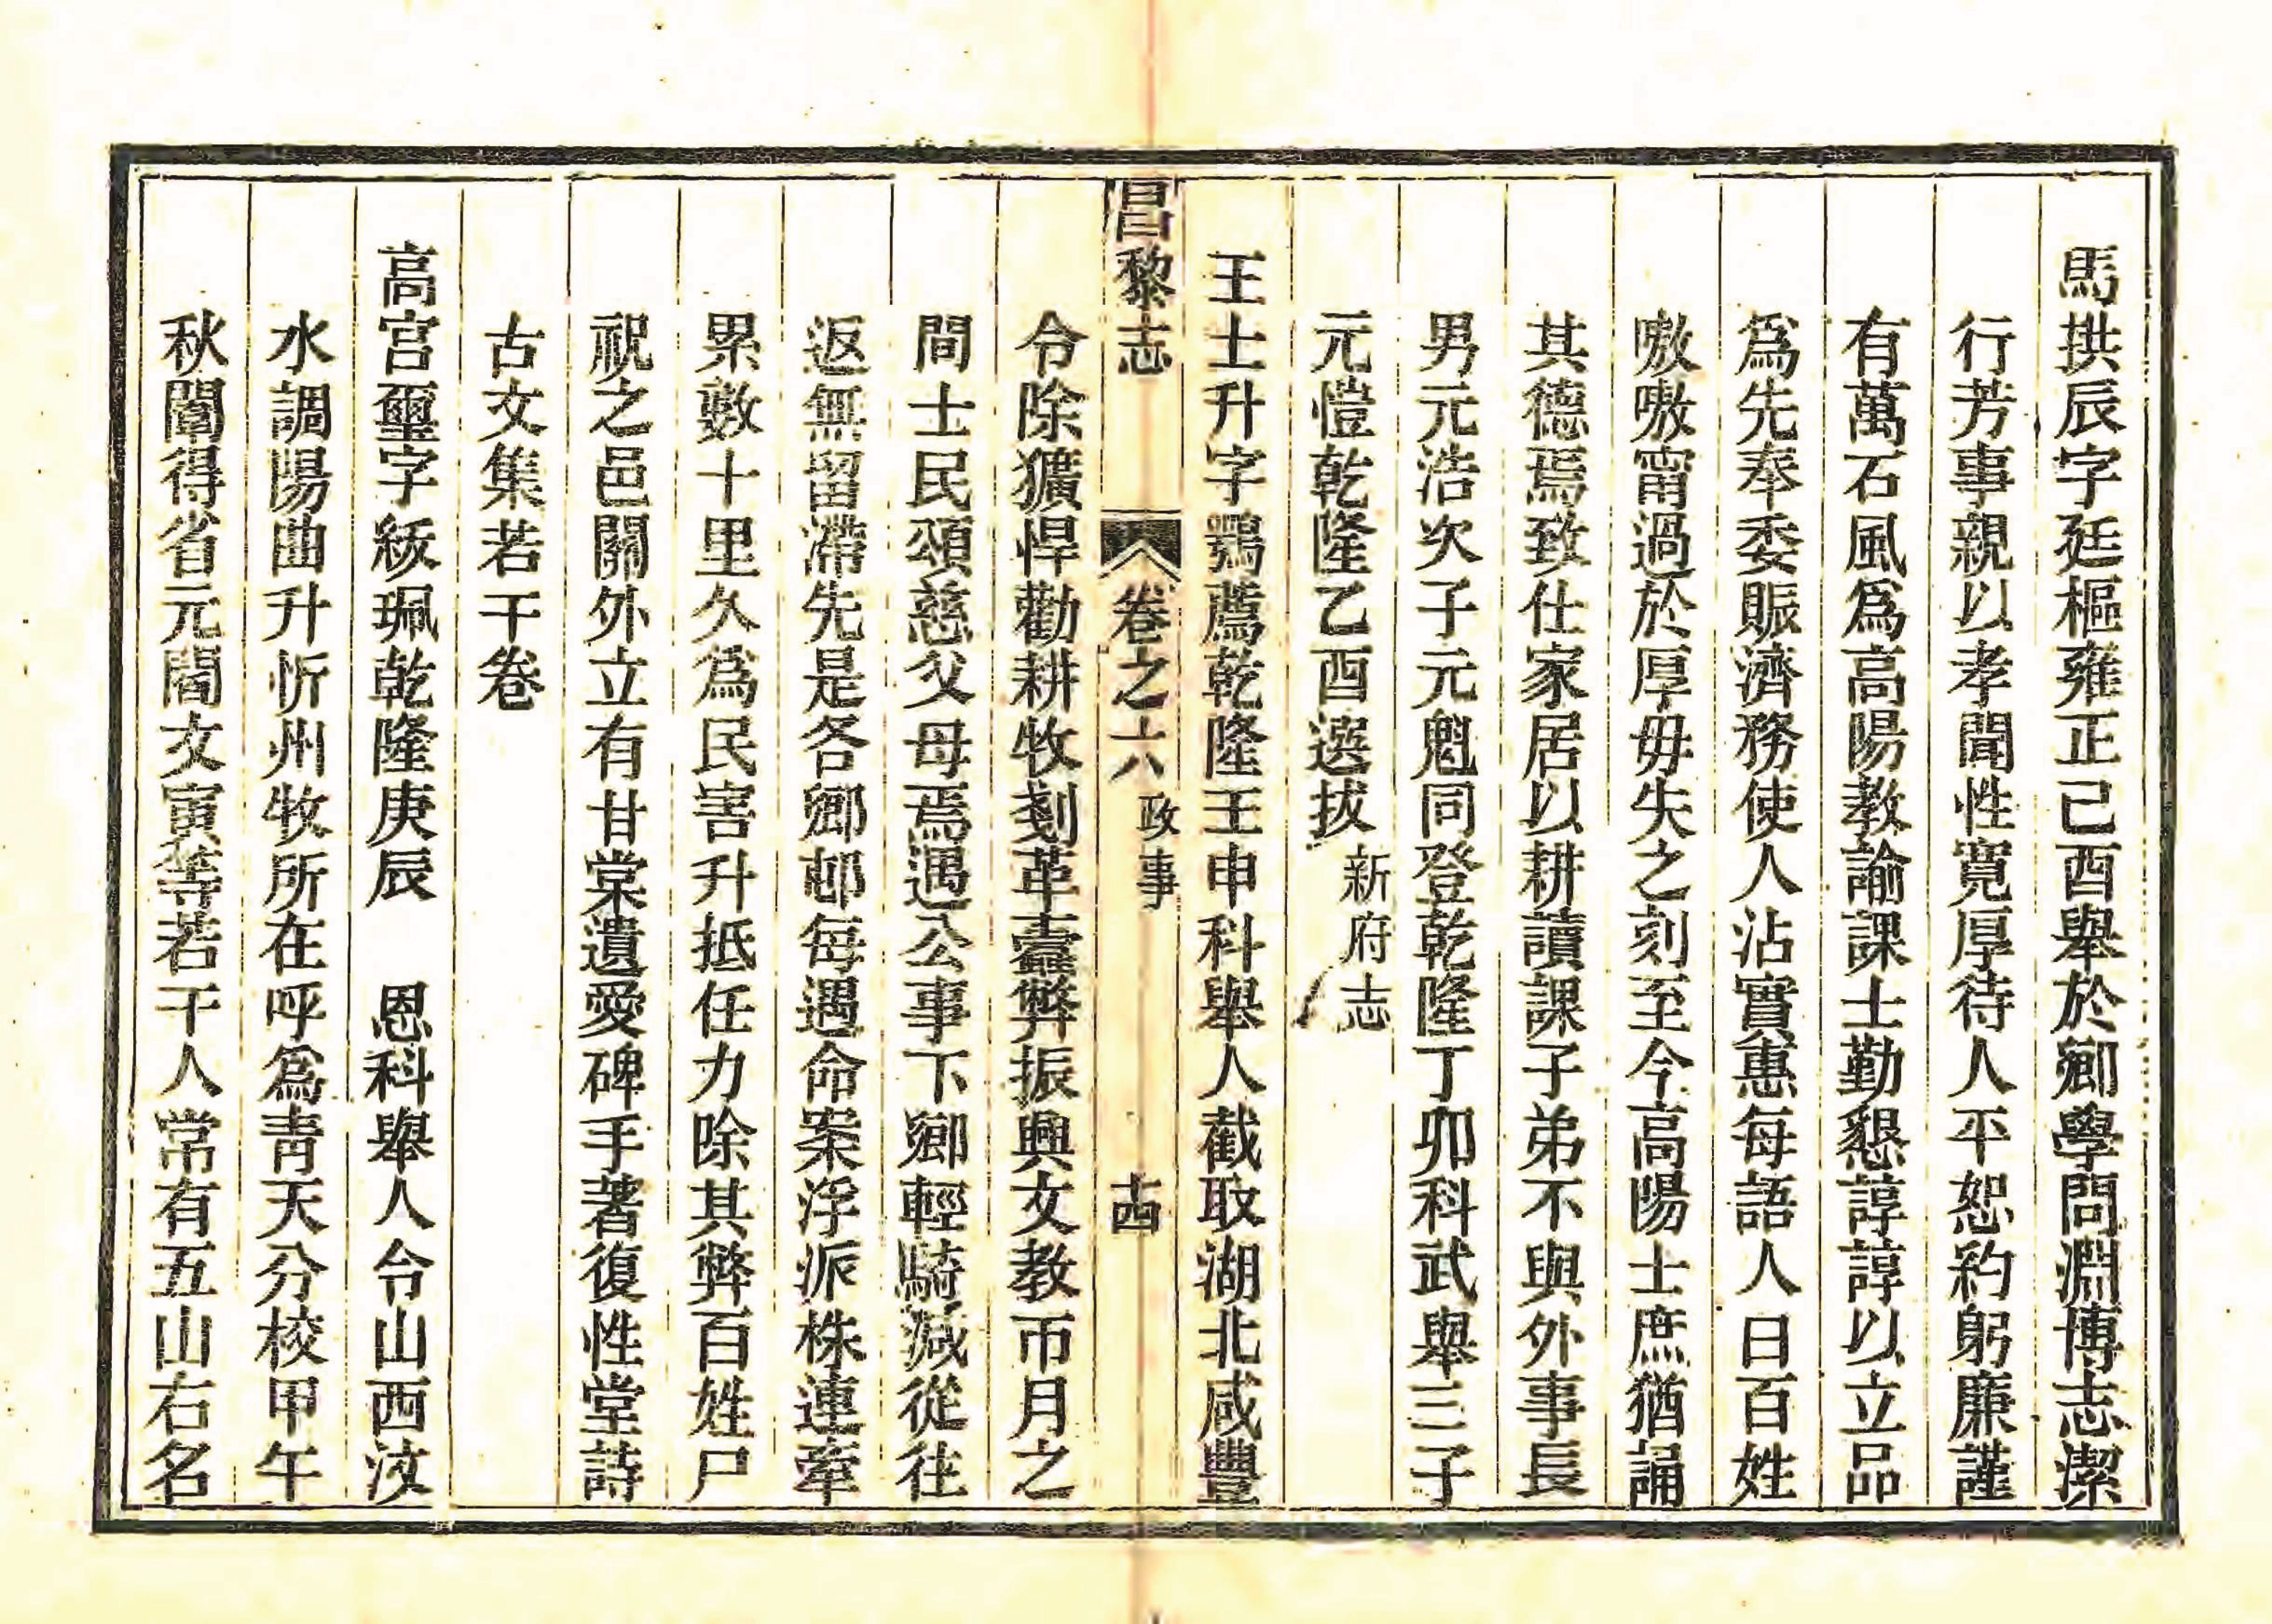 馬拱辰字廷樞雍正己酉舉於鄉學問淵博志潔
行芳事親以孝聞性寬厚待人平恕約躬廉謹
有萬石風爲高陽教諭課士勤懇諄諄以立品
爲先奉委賑濟務使人沾實惠每語人曰百姓
嗷嗷甯過於厚毋失之刻至今高陽士庶猶誦
其德焉致仕家居以耕讀課子弟不與外事長
男元浩次子元魁同登乾隆丁卯科武舉三子
元愷乾隆乙酉選拔新府志
王士升字鶚薦乾隆壬申科舉人截取湖北咸豐
昌黎志 卷之六 政事 十四
令除獷悍勸耕牧剗革蠹弊振興文教帀月之
間士民頌慈父母焉遇公事下鄉輕騎減從往
返無留滯先是各鄉邨每遇命案浮派株連牽
累數十里久爲民害升抵任力除其弊百姓尸
祝之邑關外立有甘棠遺愛碑手著復性堂詩
古文集若干卷
高宮璽字紱珮乾隆庚辰 恩科舉人令山西汶
水調陽曲升忻州牧所在呼爲青天分校甲午
秋闈得省元閻文寅等若干人常有五山右名